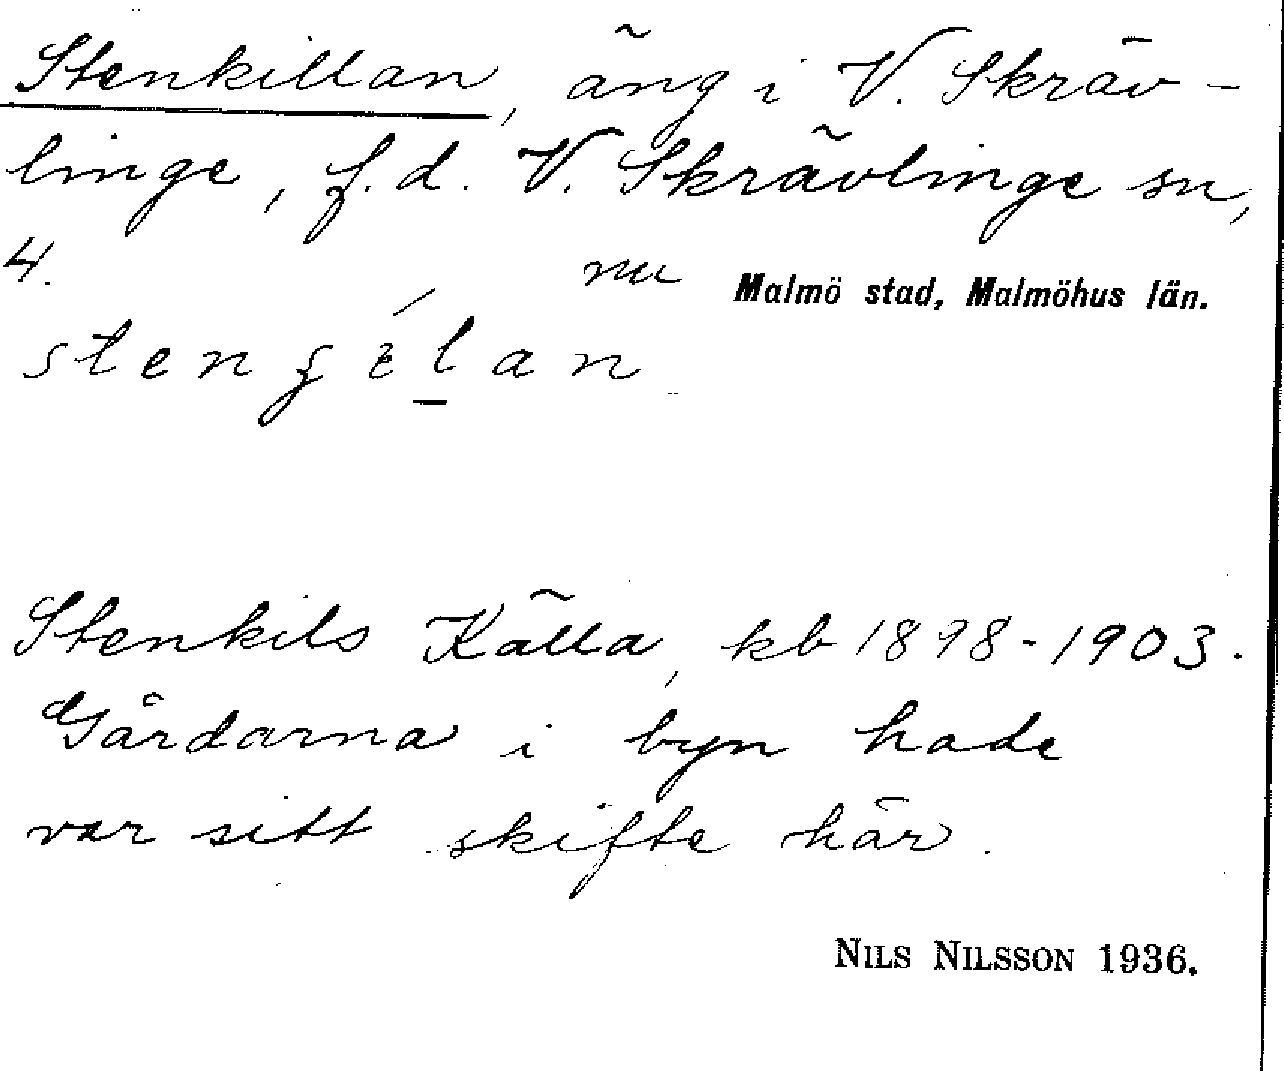 Stenkillan, äng i V. Skräv-
linge, f.d. V. Skrävlinge sn,
4.
nu Malmö stad, Malmöhus län.
Stenkils Källa, kb 1898-1903.
Gårdarna i byn hade
var sitt skifte här.
NILS NILSSON 1936.